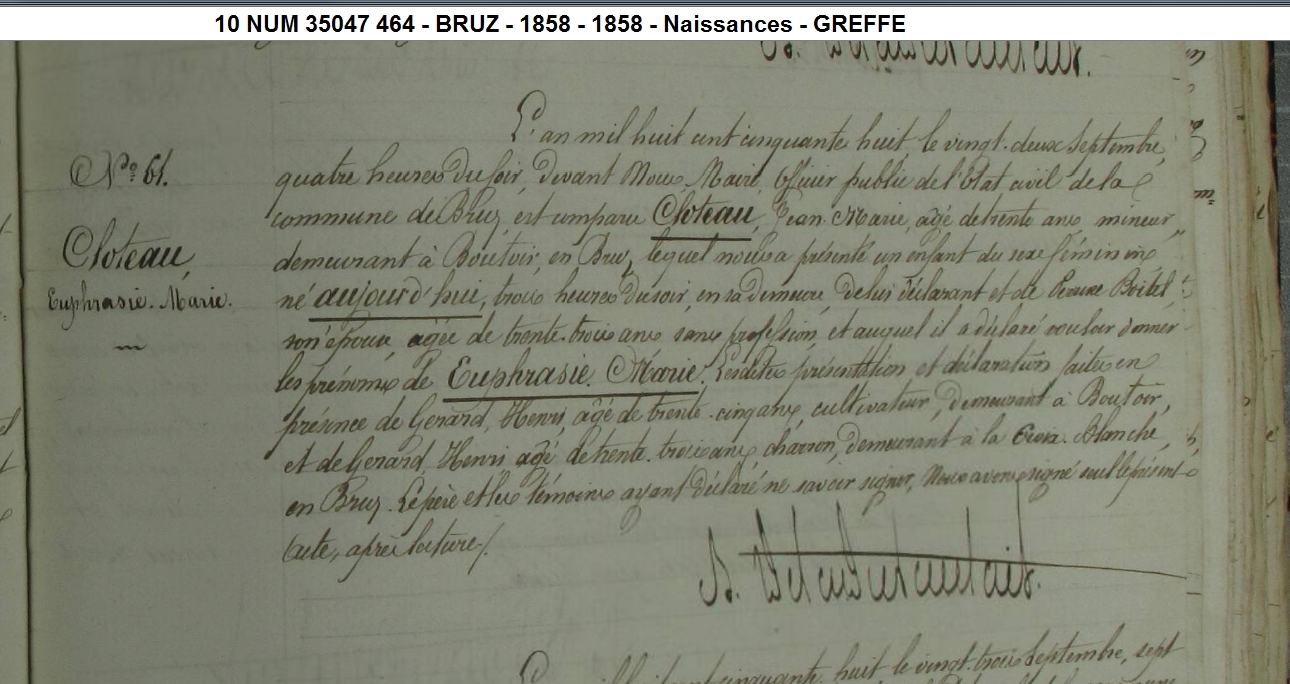 10 NUM 35047 464 - BRUZ - 1858 - 1858 - Naissances - GREFFE
L'an mil huit cent cinquante huit le vingt-deux Septembre,
N° 61.
quatre heures du soir, devant Nous, Maire, Officier public de l'Etat civil de la
commune de Bruz, est comparu Cloteau, Jean Marie, agé de trente ans, mineur,
Cloteau,
demeurant à Boutoir, en Bruz, lequel nous a présenté un enfant du sexe féminin
Euphrasie. Marie.
né aujourd'hui, trois heures du soir, en sa demeure, de lui déclarant et de Boitel,
son épouse, agée de trente-trois ans sans profession, et auquel il a déclaré vouloir donner
les prénoms de Euphrasie. Marie. Lesdites présentation et déclaration faites en
présence de Gérard, Henri, agé de trente-cinq ans, cultivateur, demeurant à Boutoir,
et de Gérard, Henri, agé de trente-trois ans, charron, demeurant à la Croix-Blanche,
en Bruz. Le père et les témoins ayant déclaré ne savoir signer, Nous avons signé seul le présent
acte, après lecture./.
L'an mil huit cent cinquante huit le vingt-trois Septembre, sept